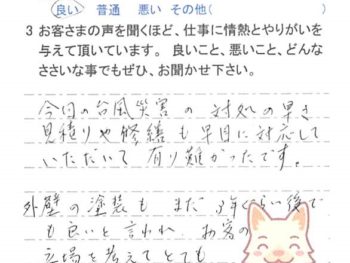 良い 普通 悪い その他(　　　)
3 お客さまの声を聞くほど、仕事に情熱とやりがいを
与えて頂いています。 良いこと、悪いこと、どんな
ささいな事でもぜひ、お聞かせ下さい。
今回の台風災害の対処の早さ
見積りや修繕も早目に対応して
いただいて有り難かったです。
外壁の塗装もまだ3年くらい後で
も良いと言われ、お客の
立場を考えてとても